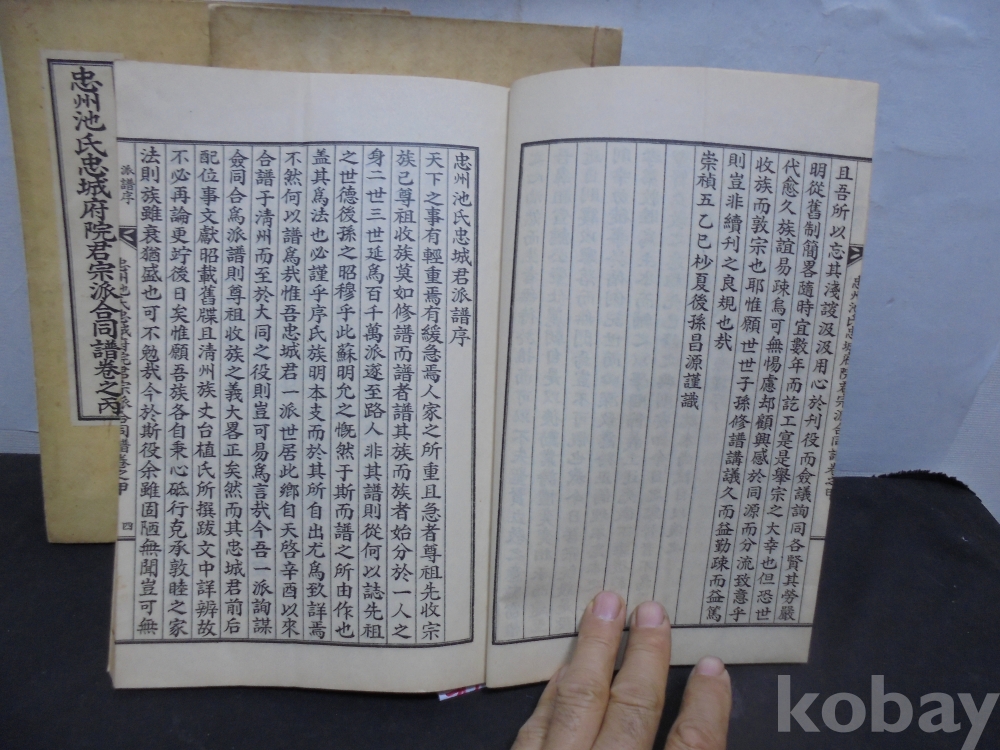 忠州池氏忠城府院君宗派合同譜卷之丙
且吾所以忘其淺謏汲汲用心於刊役而僉議詢同各賢其勞嚴
明從舊制簡畧隨時宜數年而訖工寔是擧宗之大幸也但恐世
代愈久族誼易疎烏可無惕慮却顧興感於同源而分流致意乎
收族而敦宗也耶惟願世世子孫修譜講議久而益勤疎而益篤
則豈非續刊之良規也哉
崇禎五乙巳杪夏後孫昌源謹識
忠州池氏忠城君派譜序
天下之事有輕重焉有緩急焉人家之所重且急者尊祖先收宗
族已尊祖收族莫如修譜而譜者譜其族而族者始分於一人之
身二世三世延爲百千萬派逐至路人非其譜則從何以誌先祖
之世德後孫之昭穆乎此蘇明允之慨然于斯而譜之所由作也
盖其爲法也必謹乎序氏族明本支而於其所自出尤爲致詳焉
不然何以譜爲哉惟吾忠城君一派世居此鄉自天啓辛酉以來
合譜于淸州而至於大同之役則豈可易爲言哉今吾一派詢謀
僉同合爲派譜則尊祖收族之義大畧正矣然而其忠城君前后
配位事文獻昭載舊牒且淸州族丈台植氏所撰跋文中詳辨故
不必再論更竚後日矣惟願吾族各自秉心砥行克承敦睦之家
法則族雖衰猶盛也可不勉哉今於斯役余雖固陋無聞豈可無
派譜序
忠州池氏忠城府院君宗派合同譜卷之甲
四
忠州池氏忠城府院君宗派合同譜卷之甲
kobay